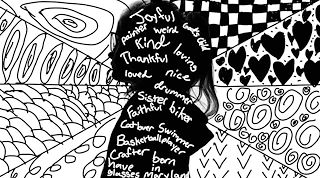 Joyful
painter weird God's child
Kind loving
Thankful
loved nice
drummer
Sister
Faithful biker
Cat lover Swimmer
Basketball player
Crafter born
have in
glasses Maryland